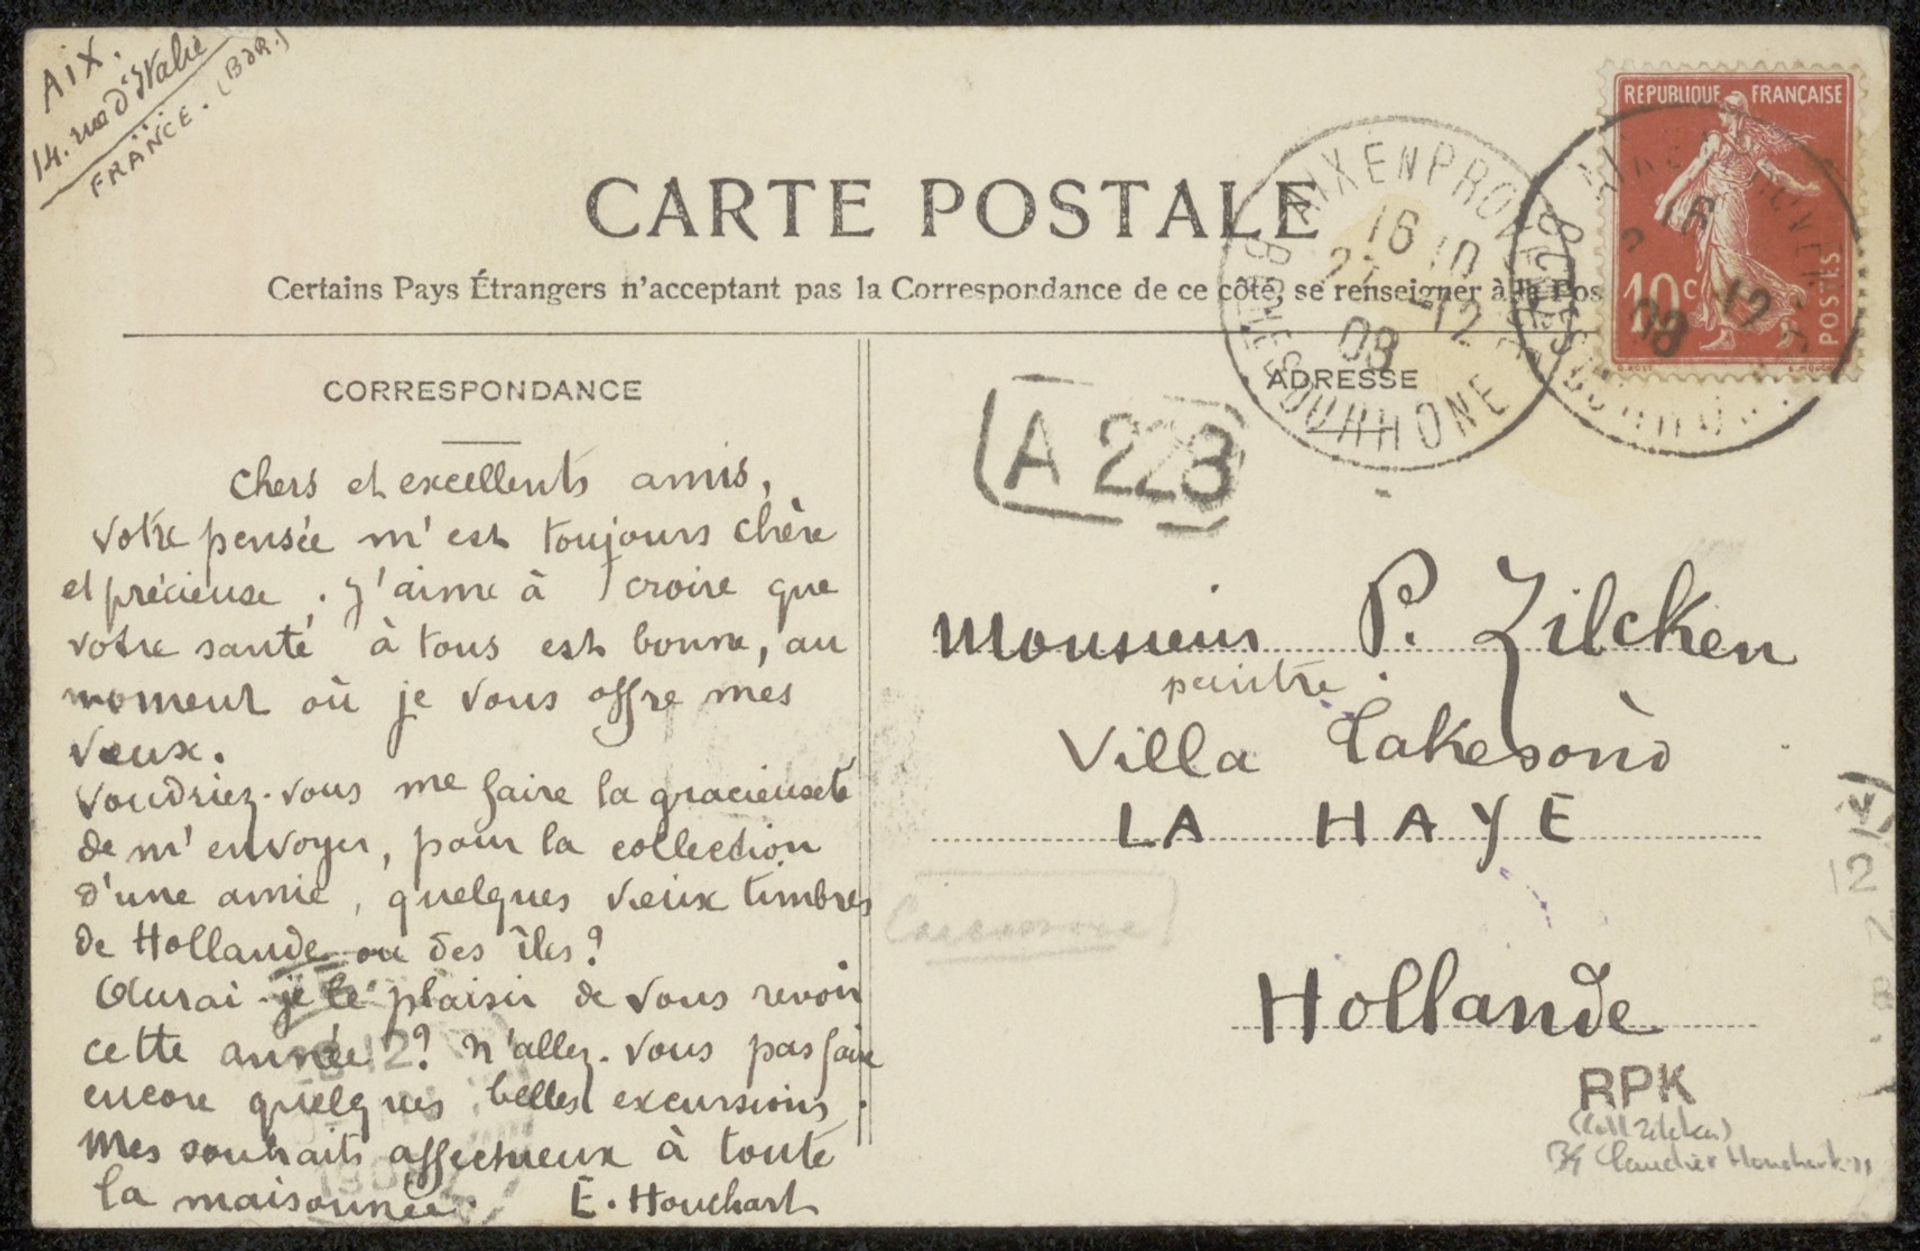 AIX.
14. rue d'Italie
FRANCE. (BdR.)
REPUBLIQUE FRANÇAISE
10c
POSTES
CARTE POSTALE
AIX EN PROVENCE
16 10
27 -12
08
BCHES DU RHONE
Certains Pays Étrangers n'acceptant pas la Correspondance de ce côté, se renseigner à la Pos
CORRESPONDANCE
chers et excellents amis,
votre pensée m'est toujours chère
et précieuse. J'aime à croire que
votre santé à tous est bonne, au
moment où je vous offre mes
vœux.
Voudriez-vous me faire la gracieuseté
de m'envoyer, pour la collection
d'une amie, quelques vieux timbres
de Hollande ou des îles?
Aurai-je le plaisir de vous revoir
cette année? N'allez-vous pas faire
encore quelques belles excursions.
Mes souhaits affectueux à toute
la maisonnée.
E. Houchart
ADRESSE
A 223
Monsieur P. Zilcken
peintre.
Villa
LA HAYE
Hollande
RPK